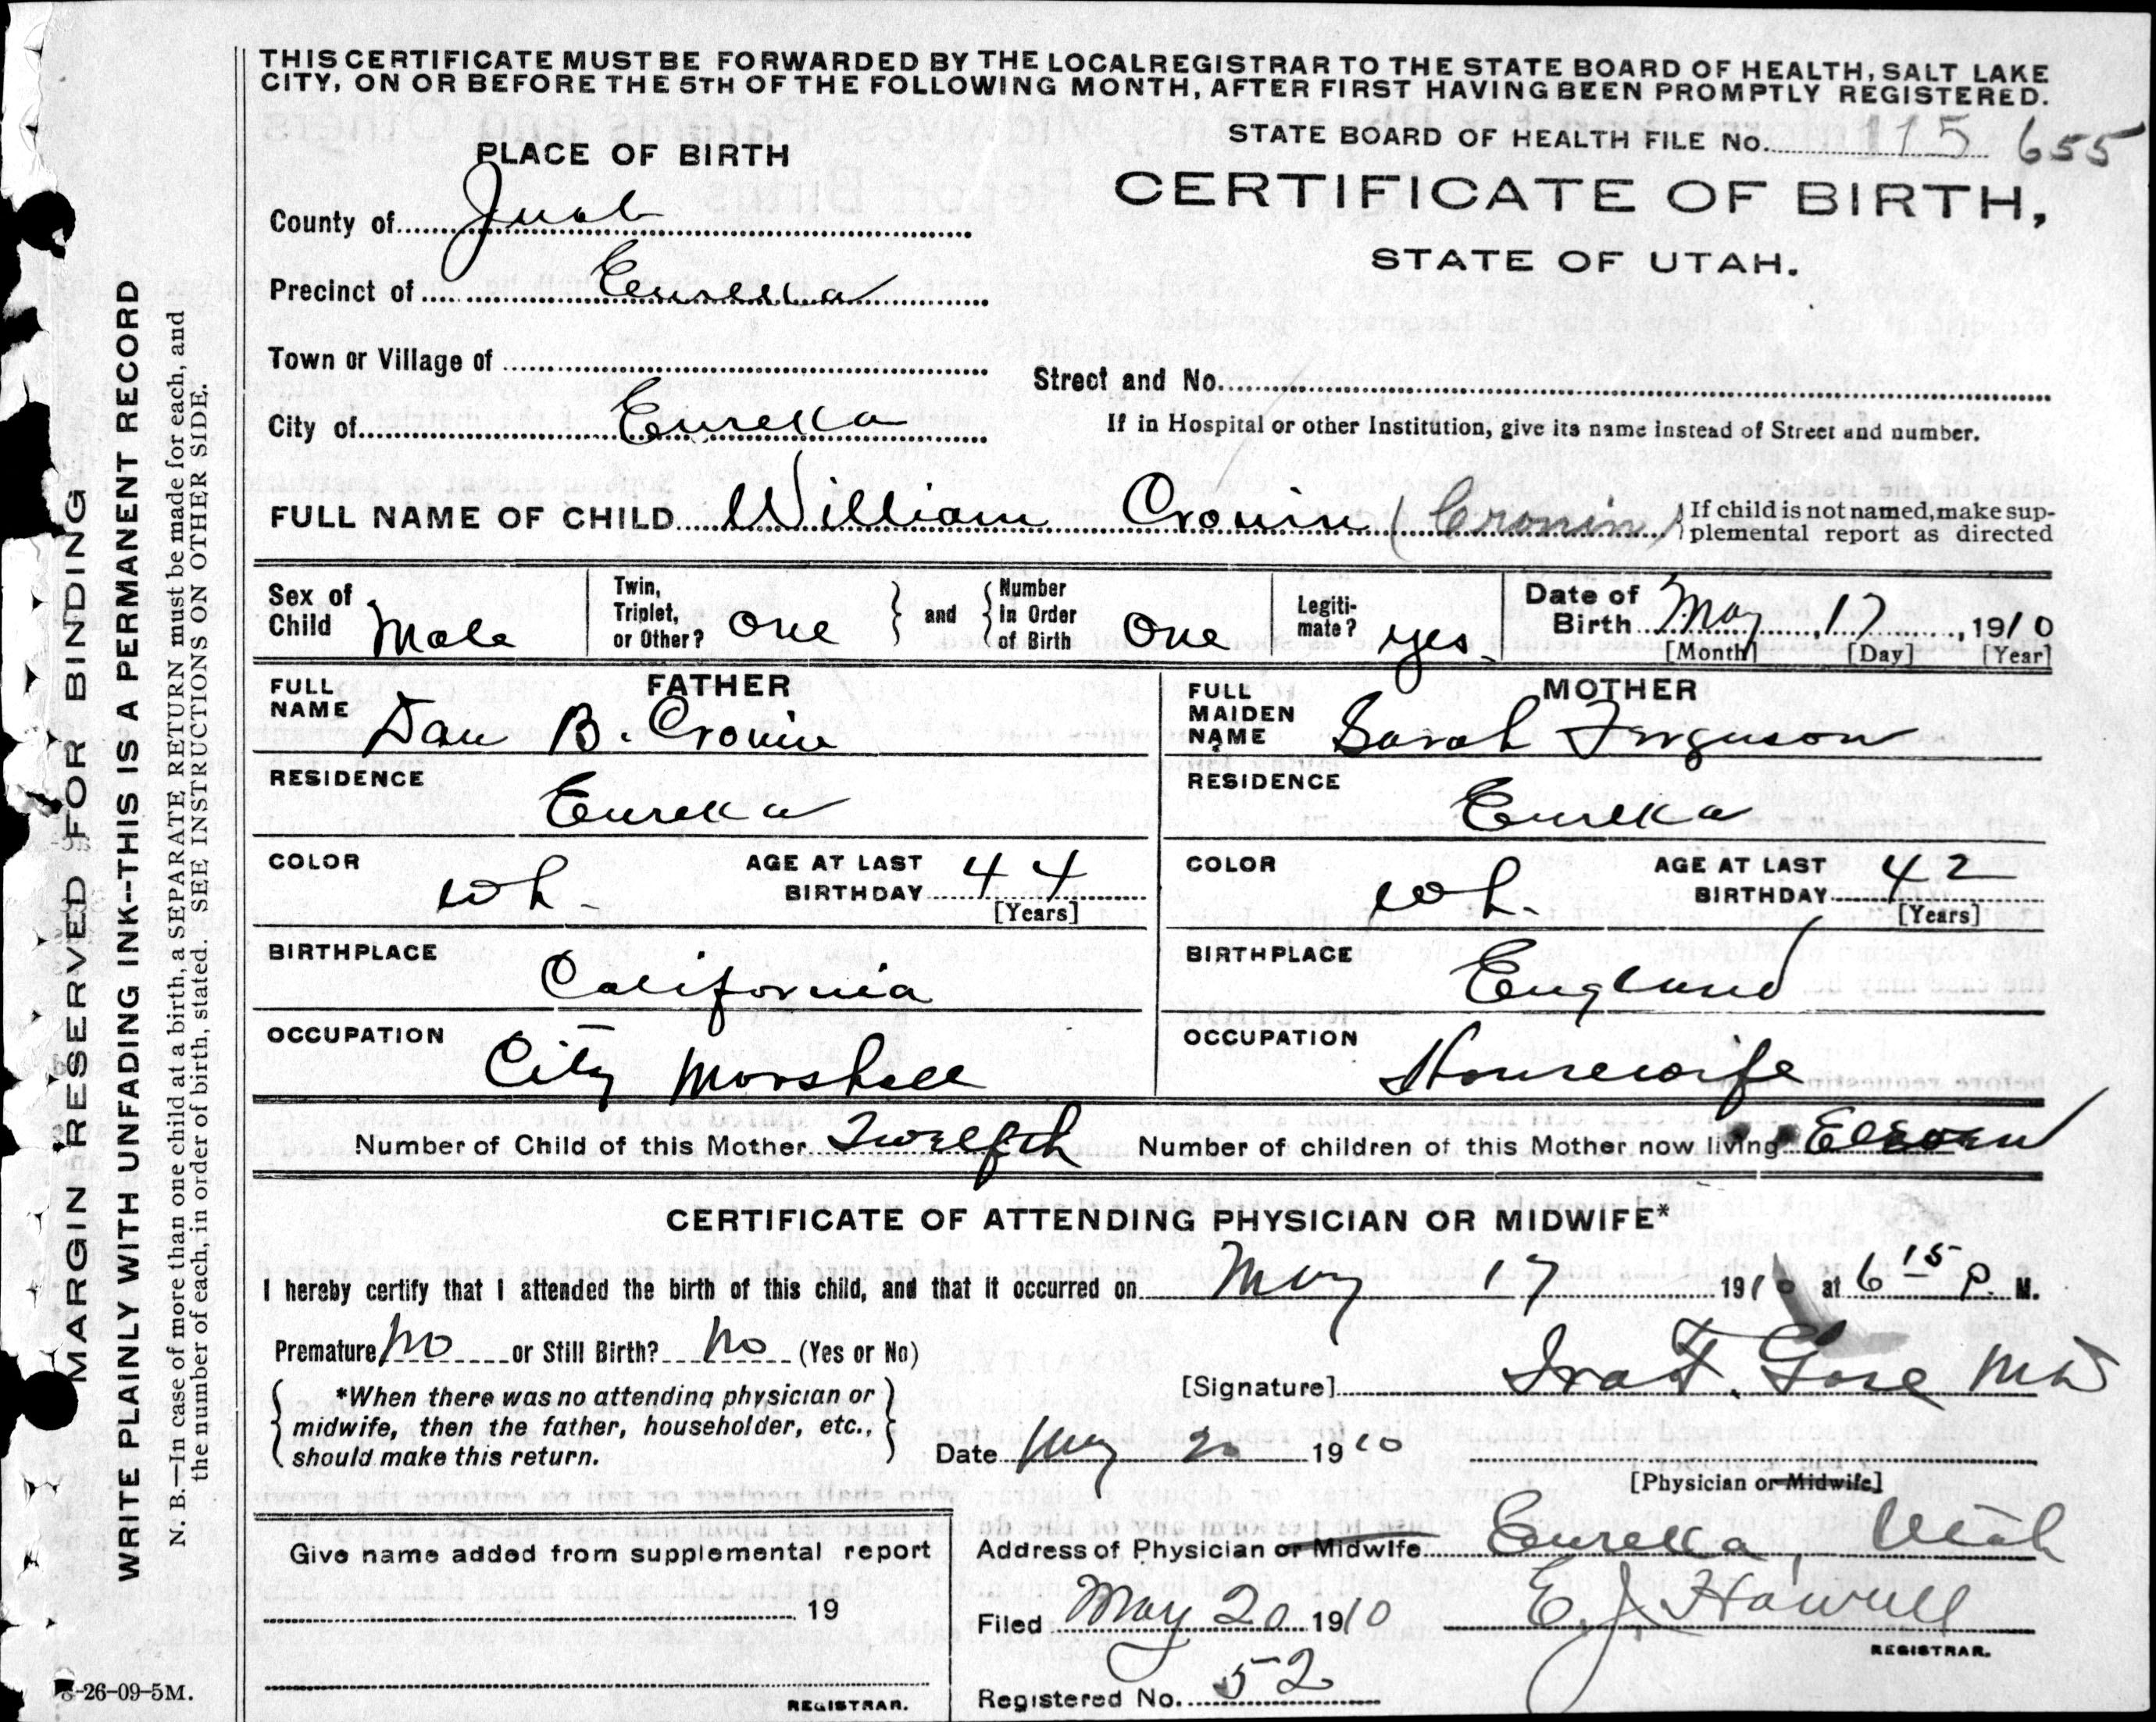 THIS CERTIFICATE MUST BE FORWARDED BY THE LOCAL REGISTRAR TO THE STATE BOARD OF HEALTH, SALT LAKE
CITY, ON OR BEFORE THE 5TH OF THE FOLLOWING MONTH, AFTER FIRST HAVING BEEN PROMPTLY REGISTERED.
STATE BOARD OF HEALTH FILE No. 115 655
PLACE OF BIRTH
CERTIFICATE OF BIRTH,
STATE OF UTAH.
County of Juab
Precinct of Eureka
Town or Village of
Street and No.
City of Eureka
If in Hospital or other Institution, give its name instead of Street and number.
FULL NAME OF CHILD William Cronin (Cronin) If child is not named, make sup-
plemental report as directed
Sex of Child Male
Twin, Triplet, or Other? One
and
Number in Order of Birth One
Legiti-
mate? yes.
Date of Birth May, 17, 1910
[Month] [Day] [Year]
FATHER
FULL NAME Dan B. Cronin
RESIDENCE Eureka
COLOR wh. AGE AT LAST BIRTHDAY 44
[Years]
BIRTHPLACE California
OCCUPATION City Marshall
MOTHER
FULL MAIDEN NAME Sarah Ferguson
RESIDENCE Eureka
COLOR wh. AGE AT LAST BIRTHDAY 42
[Years]
BIRTHPLACE England
OCCUPATION Housewife
Number of Child of this Mother Twelfth Number of children of this Mother now living Eleven
CERTIFICATE OF ATTENDING PHYSICIAN OR MIDWIFE*
I hereby certify that I attended the birth of this child, and that it occurred on May 17 1910 at 6 15 P. M.
Premature No or Still Birth? No (Yes or No)
*When there was no attending physician or
midwife, then the father, householder, etc.,
should make this return.
[Signature] Gose MD
Date May 20 1910
[Physician or Midwife]
Address of Physician or Midwife Eureka, Utah
Filed May 20 1910 E. J. Howell
REGISTRAR.
Registered No. 52
Give name added from supplemental report
19
REGISTRAR.
MARGIN RESERVED FOR BINDING
WRITE PLAINLY WITH UNFADING INK--THIS IS A PERMANENT RECORD
N. B.—In case of more than one child at a birth, a SEPARATE RETURN must be made for each, and
the number of each, in order of birth, stated. SEE INSTRUCTIONS ON OTHER SIDE.
-26-09-5M.